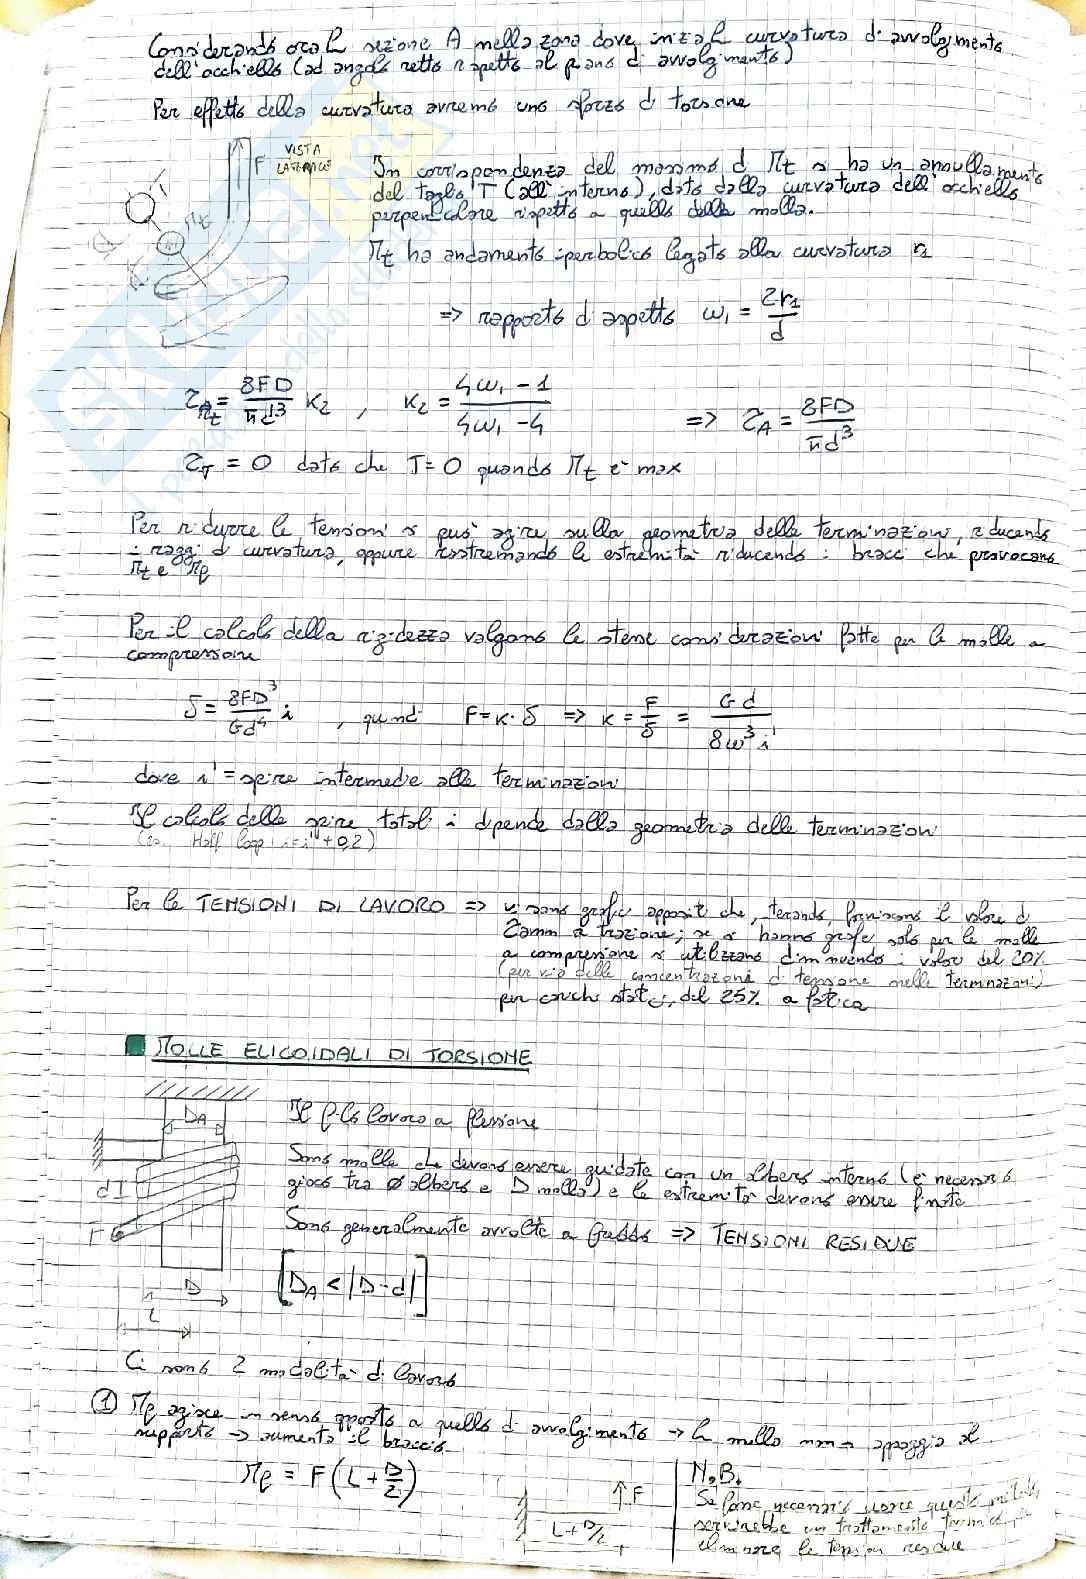 Considerando ora la sezione A nella zona dove inizia la curvatura di avvolgimento
dell'occhiello (ad angolo retto rispetto al piano di avvolgimento)
Per effetto della curvatura avremo uno sforzo di torsione
VISTA
LATERALE
F
Mt
In corrispondenza del massimo di Mt si ha un annullamento
del taglio T (all'interno), dato dalla curvatura dell'occhiello
perpendicolare rispetto a quella della molla.
Mt ha andamento iperbolico legato alla curvatura r1
=> rapporto di aspetto ω1 = 2r1/d
τMt = 8FD/πd³ K2 , K2 = (4ω1 - 1)/(4ω1 - 4) => τA = 8FD/πd³
τT = 0 dato che T=0 quando Mt è max
Per ridurre le tensioni si può agire sulla geometria delle terminazioni, riducendo
i raggi di curvatura, oppure rastremando le estremità riducendo i bracci che provocano
Mt e Mf
Per il calcolo della rigidezza valgono le stesse considerazioni fatte per le molle a
compressione
δ = 8FD³/Gd⁴ i , quindi F=K·δ => K = F/δ = Gd/8ω³i'
dove i' = spire intermedie alle terminazioni
Il calcolo delle spire totali i dipende dalla geometria delle terminazioni
(es. Half loop i=i'+0,2)
Per le TENSIONI DI LAVORO => vi sono grafici appositi che, tarando, forniscono il valore di
τamm a trazione; se si hanno grafici solo per le molle
a compressione si utilizzano diminuendo i valori del 20%
(per via delle concentrazioni di tensione nelle terminazioni)
per carichi statici, del 25% a fatica
MOLLE ELICOIDALI DI TORSIONE
DA
d
F
D
L
Il filo lavora a flessione
Sono molle che devono essere guidate con un albero interno (è necessario
gioco tra ø albero e D molla) e le estremità devono essere finite
Sono generalmente avvolte a freddo => TENSIONI RESIDUE
[DA < |D-d|]
Ci sono 2 modalità di lavoro
① Mf agisce in senso opposto a quello di avvolgimento → la molla non si appoggia al
supporto → aumenta il braccio
Mf = F(L + D/2)
F
L+D/2
N.B.
Se fosse necessario usare questo metodo,
servirebbe un trattamento termico per
eliminare le tensioni residue